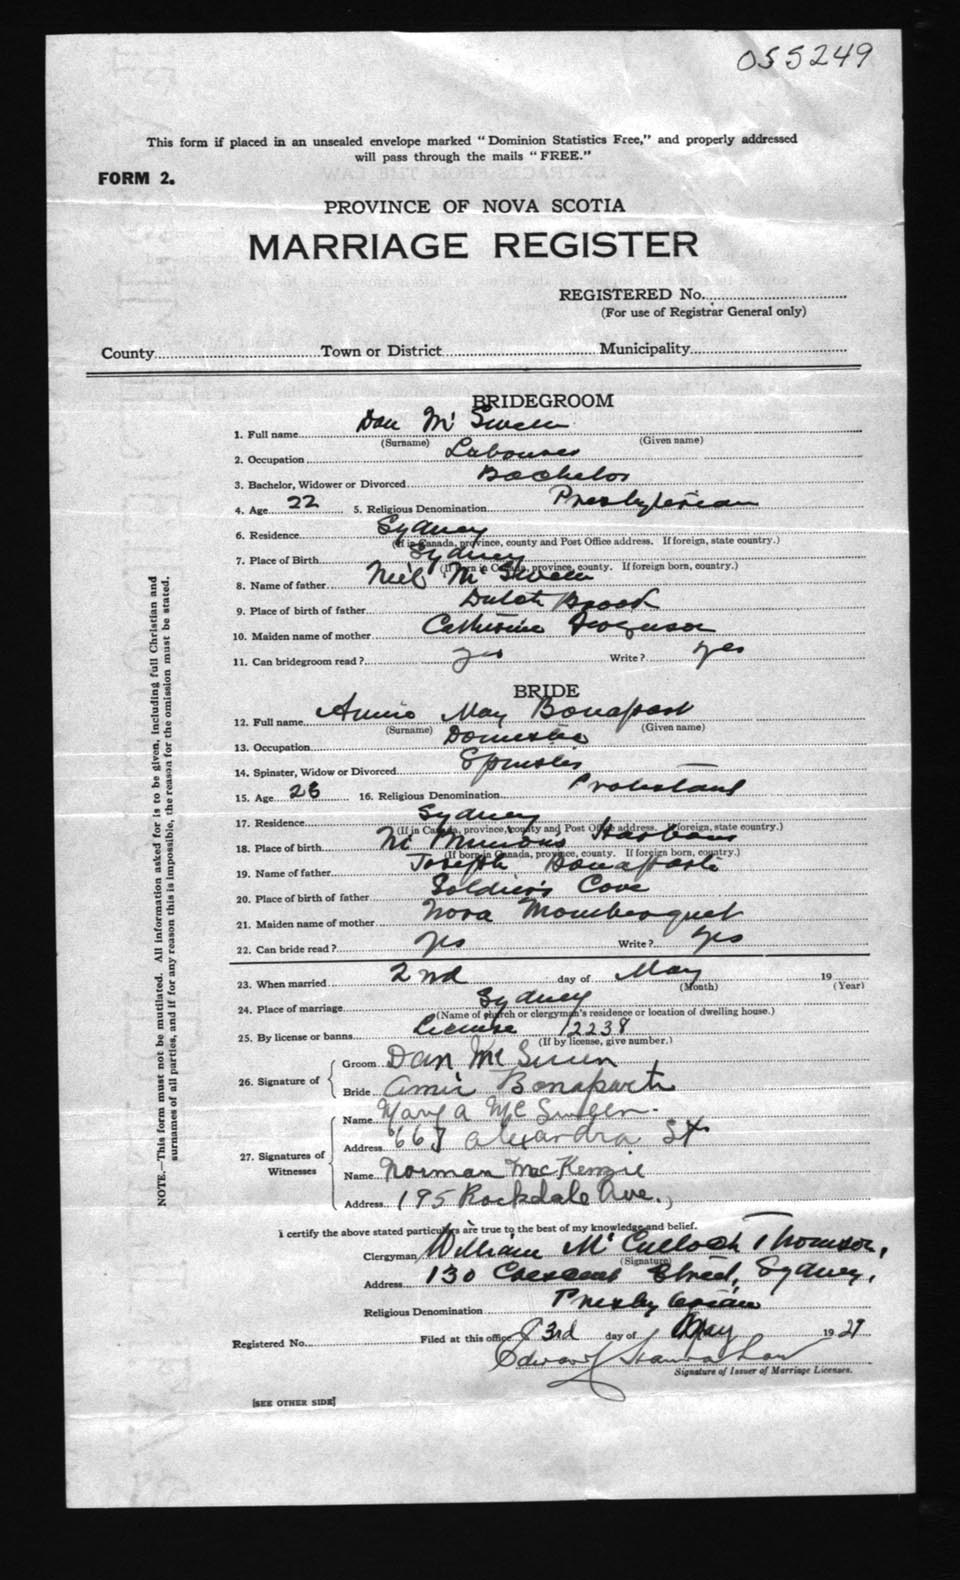 055249
This form if placed in an unsealed envelope marked "Dominion Statistics Free," and properly addressed
will pass through the mails "FREE."
FORM 2.
PROVINCE OF NOVA SCOTIA
MARRIAGE REGISTER
REGISTERED No.
(For use of Registrar General only)
County Town or District Municipality
BRIDEGROOM
1. Full name Dan Mc Swen
(Surname) (Given name)
2. Occupation Labourer
3. Bachelor, Widower or Divorced Bachelor
4. Age 22 5. Religious Denomination Presbyterian
6. Residence Sydney
(If in Canada, province, county and Post Office address. If foreign, state country.)
7. Place of Birth Sydney
(If born in Canada, province, county. If foreign born, country.)
8. Name of father Neil Mc Swen
9. Place of birth of father Dutch Brook
10. Maiden name of mother Catherine Ferguson
11. Can bridegroom read? yes Write? yes
BRIDE
12. Full name Annie May Bonapart
(Surname) (Given name)
13. Occupation Domestic
14. Spinster, Widow or Divorced Spinster
15. Age 26 16. Religious Denomination Protestant
17. Residence Sydney
(If in Canada, province, county and Post Office address. If foreign, state country.)
18. Place of birth Harbour
(If born in Canada, province, county. If foreign born, country.)
19. Name of father Joseph Bonaparte
20. Place of birth of father Soldier's Cove
21. Maiden name of mother Nora
22. Can bride read? yes Write? yes
23. When married 2nd day of May 19
(Month) (Year)
24. Place of marriage Sydney
(Name of church or clergyman's residence or location of dwelling house.)
25. By license or banns License 12238
(If by license, give number.)
26. Signature of
Groom Dan Mc Swen
Bride Annie Bonaparte
27. Signatures of Witnesses
Name Mary A Mc Sween
Address 667 Alexandra St
Name Norman MacKenzie
Address 195 Rockdale Ave.,
I certify the above stated particulars are true to the best of my knowledge and belief.
Clergyman William Mc Culloch Thomson,
(Signature)
Address 130 Crescent Street, Sydney,
Religious Denomination Presbyterian
Registered No. Filed at this office 3rd day of May 1927
Edward Hanrahan
Signature of Issuer of Marriage Licenses.
[SEE OTHER SIDE]
NOTE.—This form must not be mutilated. All information asked for is to be given, including full Christian and
surnames of all parties, and if for any reason this is impossible, the reason for the omission must be stated.